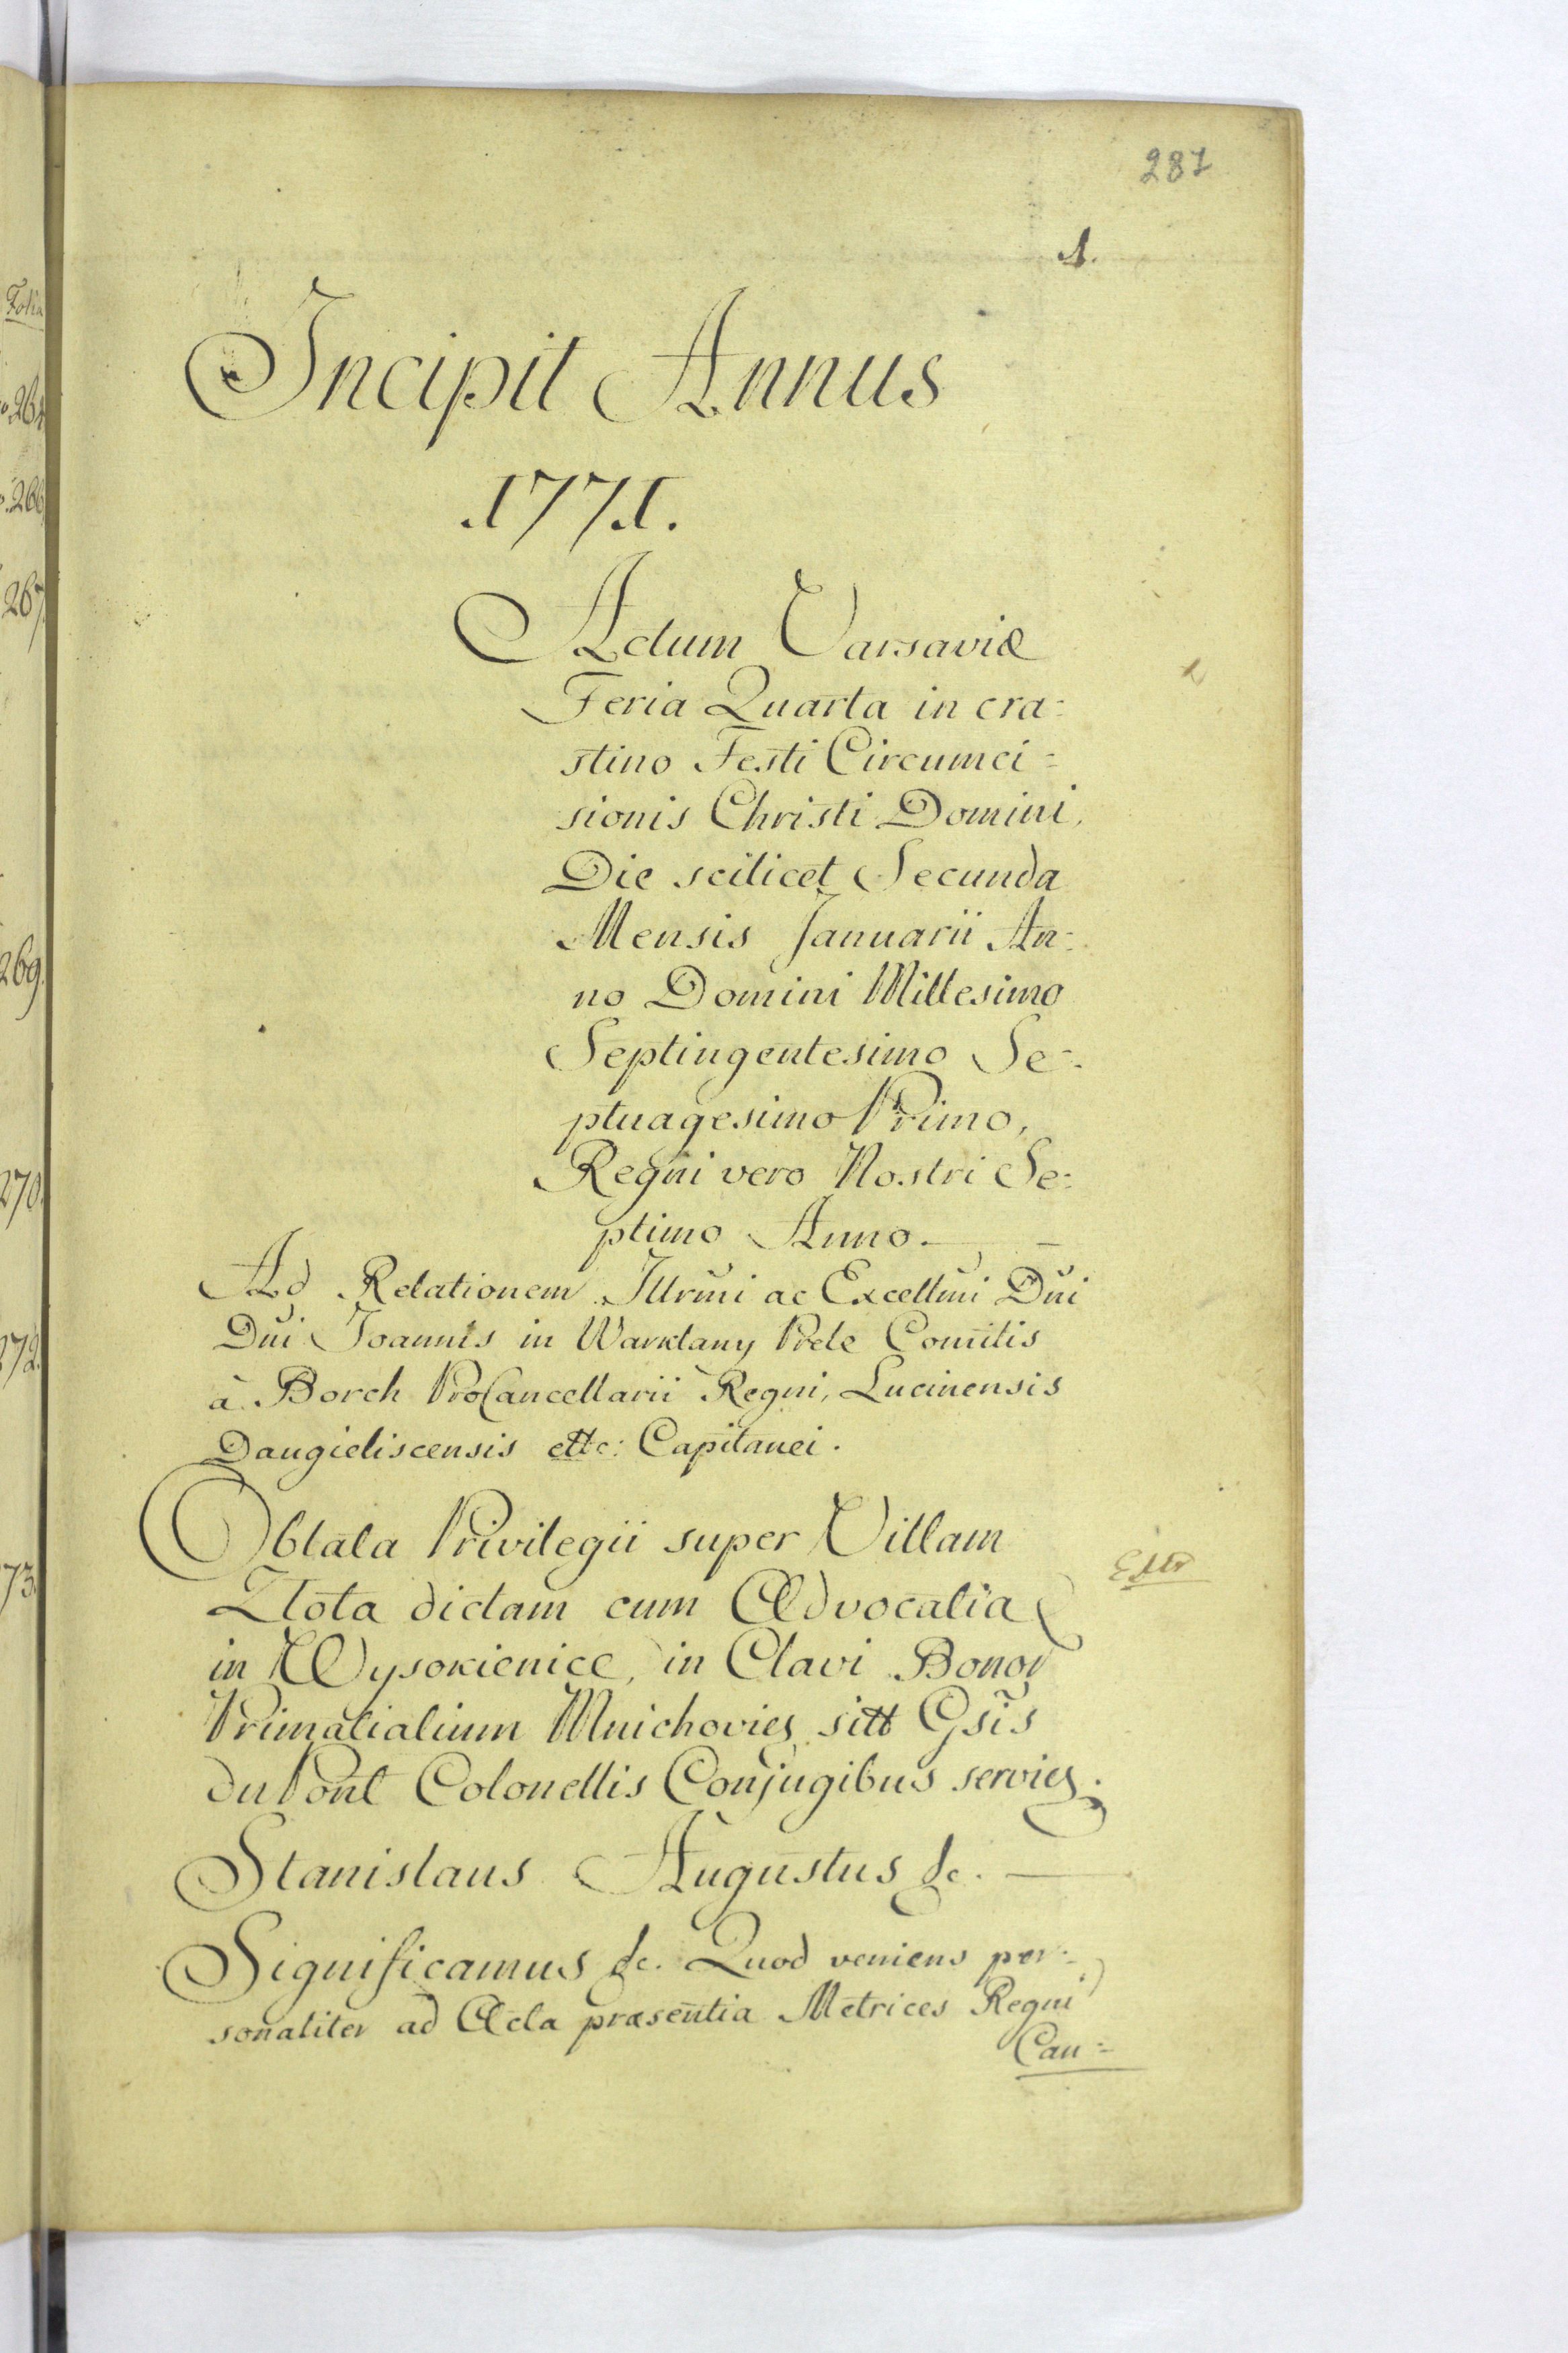 287
1.
Incipit Annus
1771.
Actum Varsaviæ
Feria Quarta in cra=
stino Festi Circumci=
sionis Christi Domini,
Die scilicet Secunda
Mensis Januarii An=
no Domini Millesimo
Septingentesimo Se=
ptuagesimo Primo,
Regni vero Nostri Se=
ptimo Anno. —
Ad Relationem Illrmi ac Excellmi Dni
Dni Joannis in Warklany Prele Comitis
à Borch ProCancellarii Regni, Lucinensis
Daugieliscensis ettc: Capitanei.
Oblata Privilegii super Villam
Złota dictam cum Advocatia
in Wysokienice, in Clavi Bonor
Primatialium Mnichovien sitt Gsis
du Pont Colonellis Conjugibus servien.
Stanislaus Augustus &c. —
Significamus &c. Quod veniens per=
sonaliter ad Acta præsentia Metrices Regni
Can=
Folia
264
266
267
269.
270.
272.
73.